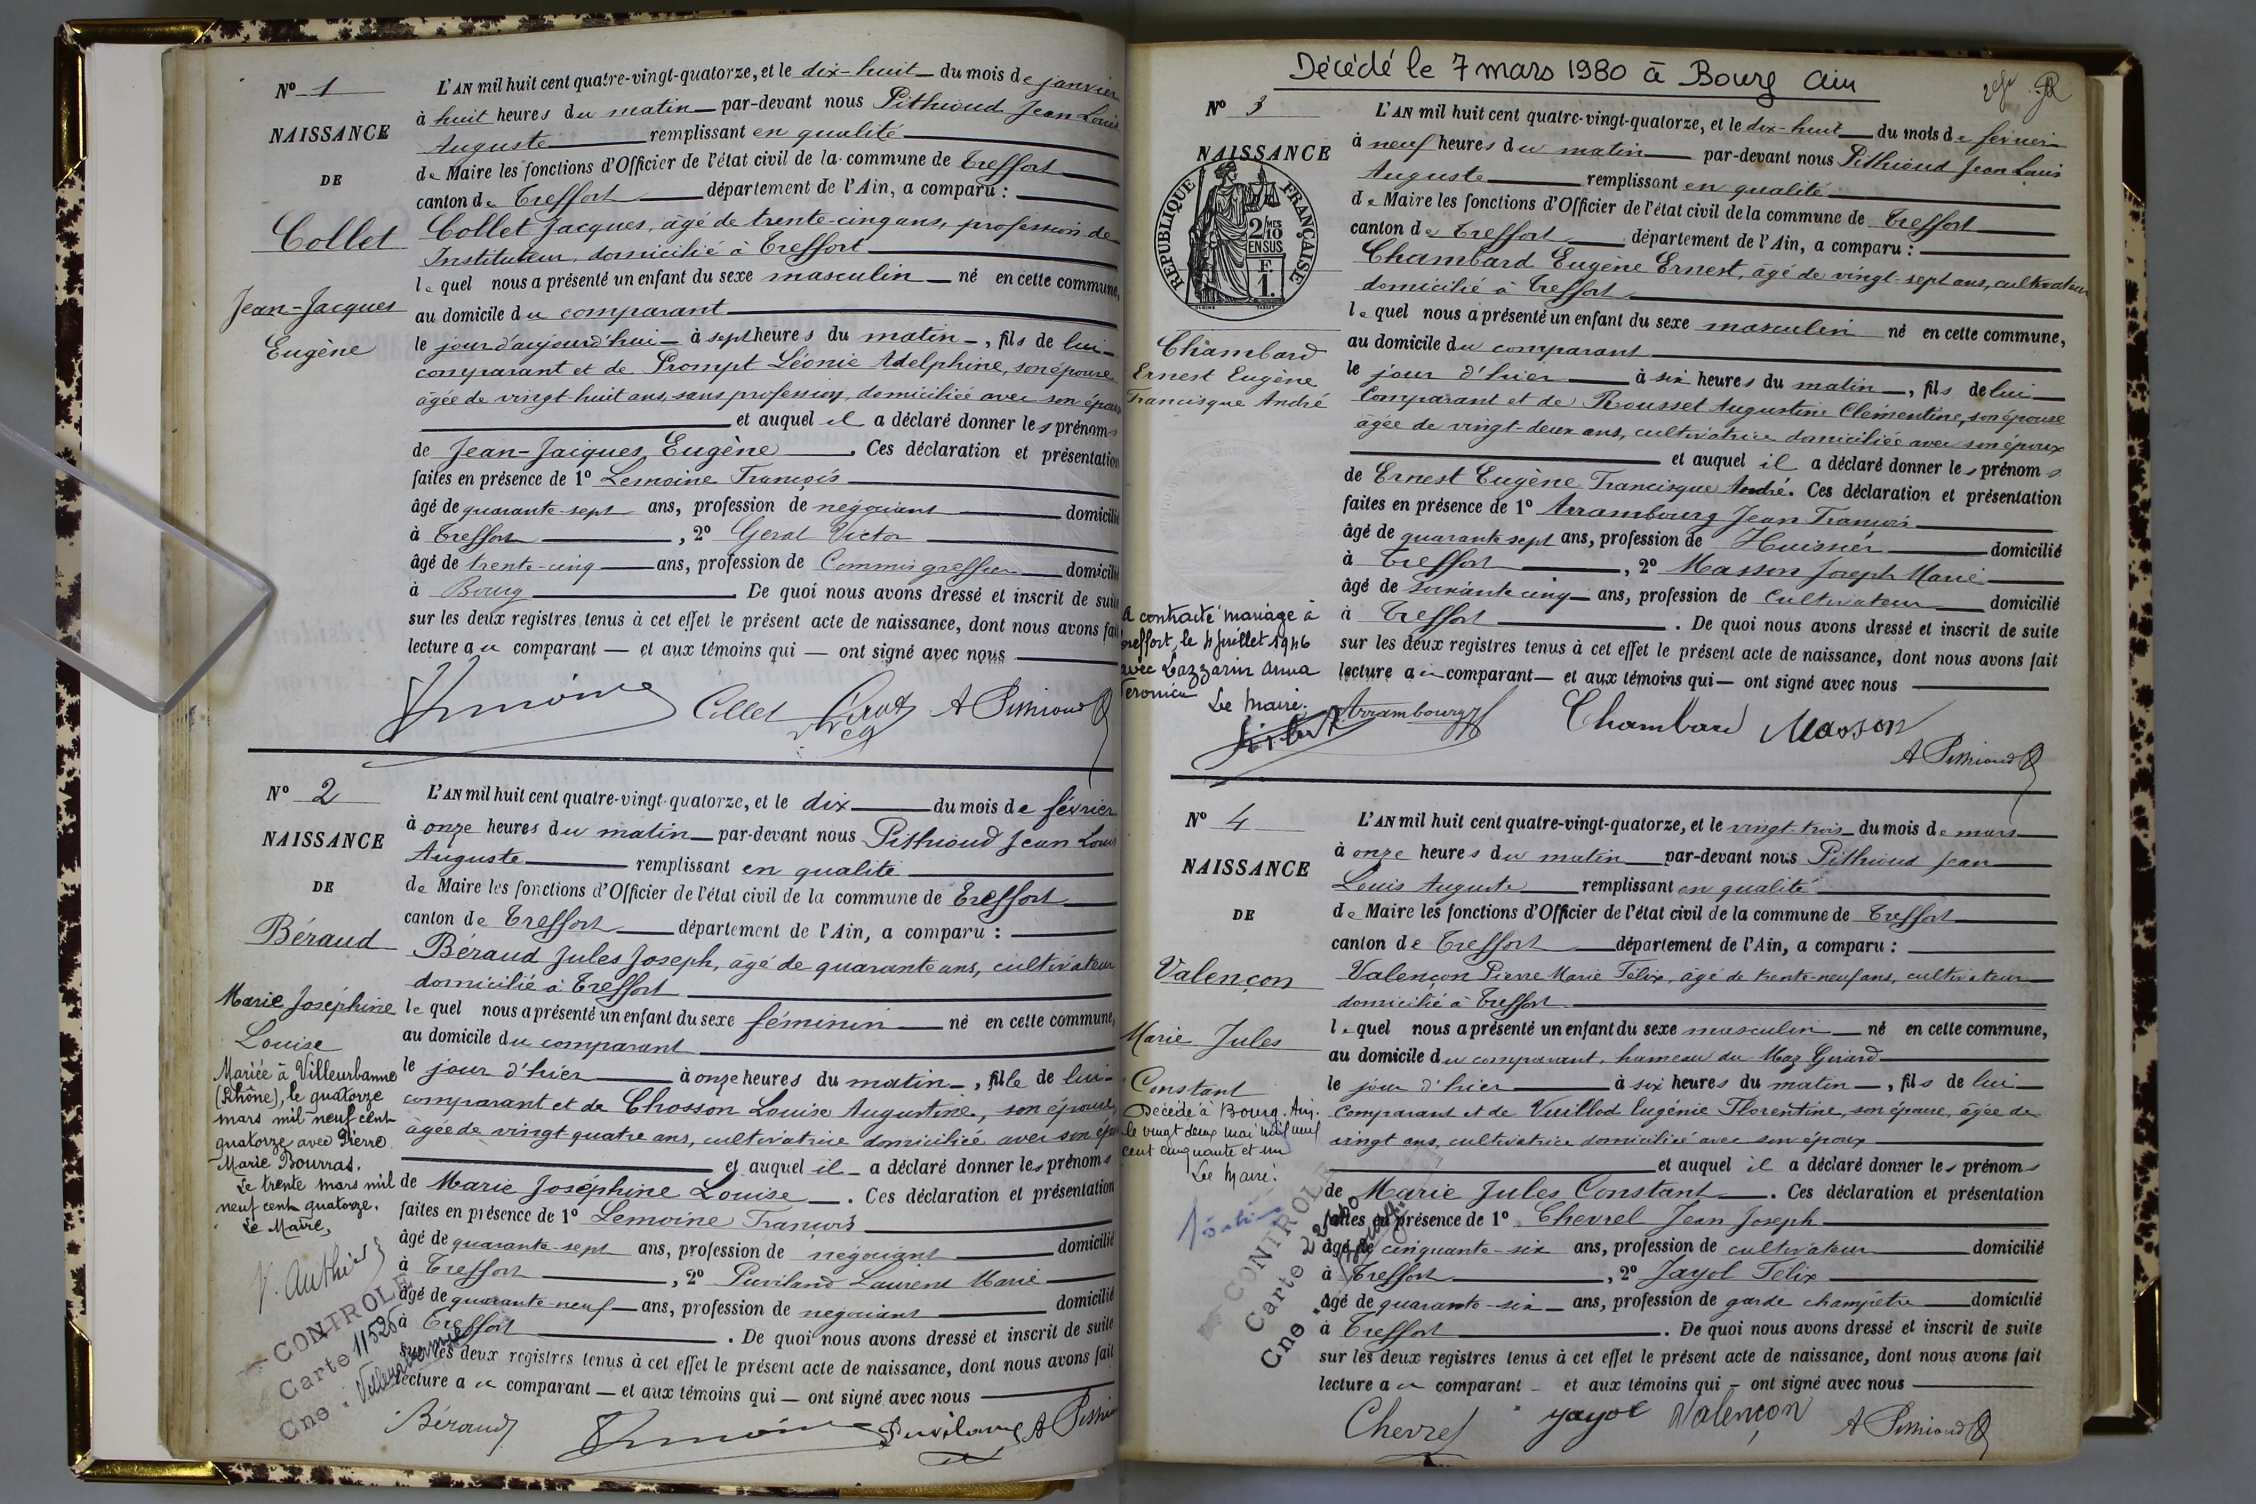 N° 1
NAISSANCE
DE
Collet
Jean-Jacques
Eugène
L'AN mil huit cent quatre-vingt-quatorze, et le dix-huit du mois de janvier
à huit heures du matin par-devant nous Pithioud Jean Louis
Auguste remplissant en qualité
de Maire les fonctions d'Officier de l'état civil de la commune de Treffort
canton de Treffort département de l'Ain, a comparu :
Collet Jacques, âgé de trente-cinq ans, profession de
Instituteur, domicilié à Treffort
lequel nous a présenté un enfant du sexe masculin né en cette commune,
au domicile du comparant
le jour d'aujourd'hui à sept heures du matin, fils de lui
comparant et de Prompt Léonie Adelphine, son épouse
âgée de vingt-huit ans, sans profession, domiciliée avec son époux
et auquel il a déclaré donner les prénoms
de Jean-Jacques Eugène. Ces déclaration et présentation
faites en présence de 1° Lemoine François
âgé de quarante-sept ans, profession de négociant domicilié
à Treffort, 2° Gerat Victor
âgé de trente-cinq ans, profession de Commis greffier domicilié
à Bourg. De quoi nous avons dressé et inscrit de suite
sur les deux registres tenus à cet effet le présent acte de naissance, dont nous avons fait
lecture au comparant — et aux témoins qui — ont signé avec nous
Collet A Pithioud
N° 2
NAISSANCE
DE
Béraud
Marie Joséphine
Louise
Mariée à Villeurbanne
(Rhône), le quatorze
mars mil neuf cent
quatorze avec Pierre
Marie Bourrat.
Le trente mars mil
neuf cent quatorze.
Le Maire,
CONTROLE
Carte 11526
Cne. Villeurbanne
L'AN mil huit cent quatre-vingt-quatorze, et le dix du mois de février
à onze heures du matin par-devant nous Pithioud Jean Louis
Auguste remplissant en qualité
de Maire les fonctions d'Officier de l'état civil de la commune de Treffort
canton de Treffort département de l'Ain, a comparu :
Béraud Jules Joseph, âgé de quarante ans, cultivateur
domicilié à Treffort
lequel nous a présenté un enfant du sexe féminin né en cette commune,
au domicile du comparant
le jour d'hier à onze heures du matin, fille de lui
comparant et de Chosson Louise Augustine, son épouse,
âgée de vingt quatre ans, cultivatrice domiciliée avec son époux
et auquel il a déclaré donner les prénoms
de Marie Joséphine Louise. Ces déclaration et présentation
faites en présence de 1° Lemoine François
âgé de quarante-sept ans, profession de négociant domicilié
à Treffort, 2° Puvilland Laurent Marie
âgé de quarante-neuf ans, profession de négociant domicilié
à Treffort. De quoi nous avons dressé et inscrit de suite
sur les deux registres tenus à cet effet le présent acte de naissance, dont nous avons fait
lecture au comparant — et aux témoins qui — ont signé avec nous
Béraud Puviland A Pithioud
Décédé le 7 mars 1980 à Bourg Ain
N° 3
NAISSANCE
REPUBLIQUE FRANÇAISE
2/10 MES
EN SUS
F.
1.
Chambard
Ernest Eugène
Francisque André
A contracté mariage à
Treffort, le 4 Juillet 1946
avec Lazzarin Anna
Veronica
Le Maire.
L'AN mil huit cent quatre-vingt-quatorze, et le dix-huit du mois de février
à neuf heures du matin par-devant nous Pithioud Jean Louis
Auguste remplissant en qualité
de Maire les fonctions d'Officier de l'état civil de la commune de Treffort
canton de Treffort département de l'Ain, a comparu :
Chambard Eugène Ernest, âgé de vingt-sept ans, cultivateur
domicilié à Treffort
lequel nous a présenté un enfant du sexe masculin né en cette commune,
au domicile du comparant
le jour d'hier à six heures du matin, fils de lui
Comparant et de Rousset Augustine Clémentine, son épouse
âgée de vingt-deux ans, cultivatrice domiciliée avec son époux
et auquel il a déclaré donner les prénoms
de Ernest Eugène Francisque André. Ces déclaration et présentation
faites en présence de 1° Arrambourg Jean François
âgé de quarante sept ans, profession de Huissier domicilié
à Treffort, 2° Masson Joseph Marie
âgé de soixante cinq ans, profession de Cultivateur domicilié
à Treffort. De quoi nous avons dressé et inscrit de suite
sur les deux registres tenus à cet effet le présent acte de naissance, dont nous avons fait
lecture au comparant — et aux témoins qui — ont signé avec nous
Arrambourg Chambard Masson
A Pithioud
N° 4
NAISSANCE
DE
Valençon
Marie Jules
Constant
Décédé à Bourg. Ain.
le vingt deux mai mil neuf
cent cinquante et un
Le Maire.
CONTROLE
Carte
Cne.
L'AN mil huit cent quatre-vingt-quatorze, et le vingt-trois du mois de mars
à onze heures du matin par-devant nous Pithioud Jean
Louis Auguste remplissant en qualité
de Maire les fonctions d'Officier de l'état civil de la commune de Treffort
canton de Treffort département de l'Ain, a comparu :
Valençon Pierre Marie Félix, âgé de trente-neuf ans, cultivateur
domicilié à Treffort
lequel nous a présenté un enfant du sexe masculin né en cette commune,
au domicile du comparant, hameau du Maz Girard
le jour d'hier à six heures du matin, fils de lui
comparant et de Vuillod Eugénie Florentine, son épouse, âgée de
vingt ans, cultivatrice domiciliée avec son époux
et auquel il a déclaré donner les prénoms
de Marie Jules Constant. Ces déclaration et présentation
faites en présence de 1° Chevrel Jean Joseph
âgé de cinquante-six ans, profession de cultivateur domicilié
à Treffort, 2° Jayol Félix
âgé de quarante-six ans, profession de garde champêtre domicilié
à Treffort. De quoi nous avons dressé et inscrit de suite
sur les deux registres tenus à cet effet le présent acte de naissance, dont nous avons fait
lecture au comparant - et aux témoins qui - ont signé avec nous
Chevrel Jayol Valençon A Pithioud